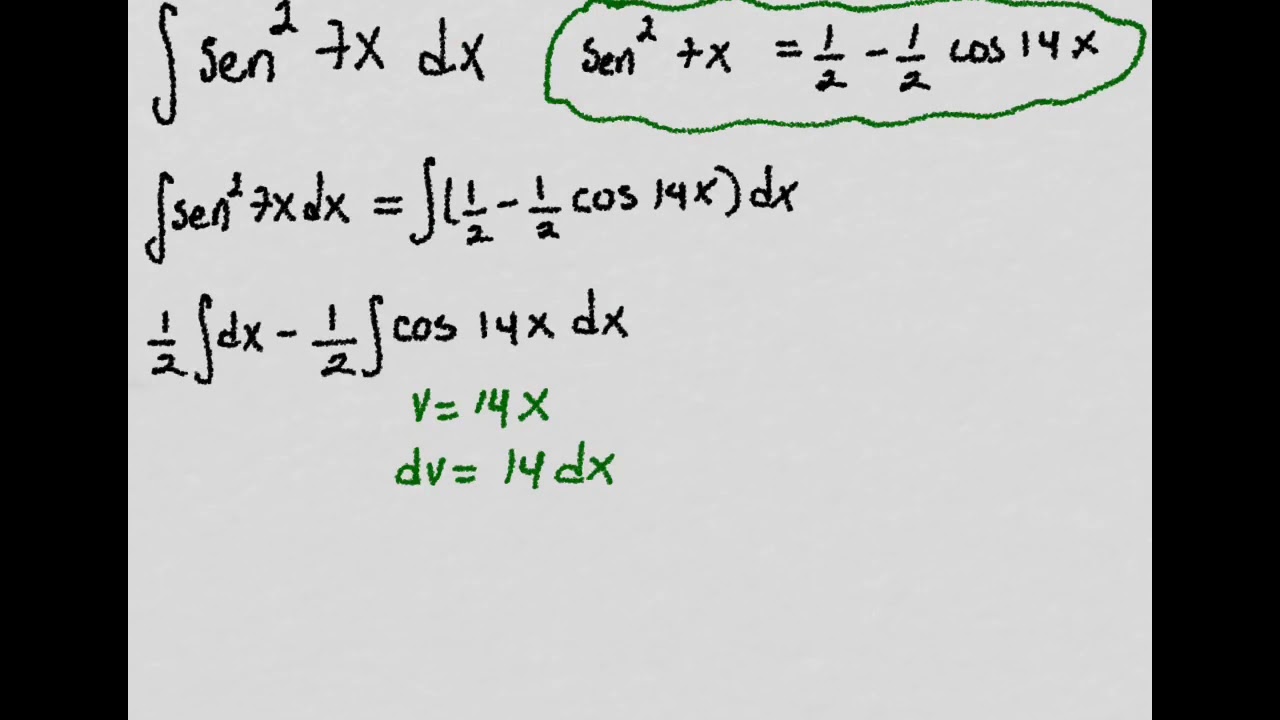 ∫ sen² 7x dx   sen² 7x = 1/2 - 1/2 cos 14x
∫ sen² 7x dx = ∫ (1/2 - 1/2 cos 14x) dx
1/2 ∫ dx - 1/2 ∫ cos 14x dx
v = 14x
dv = 14 dx